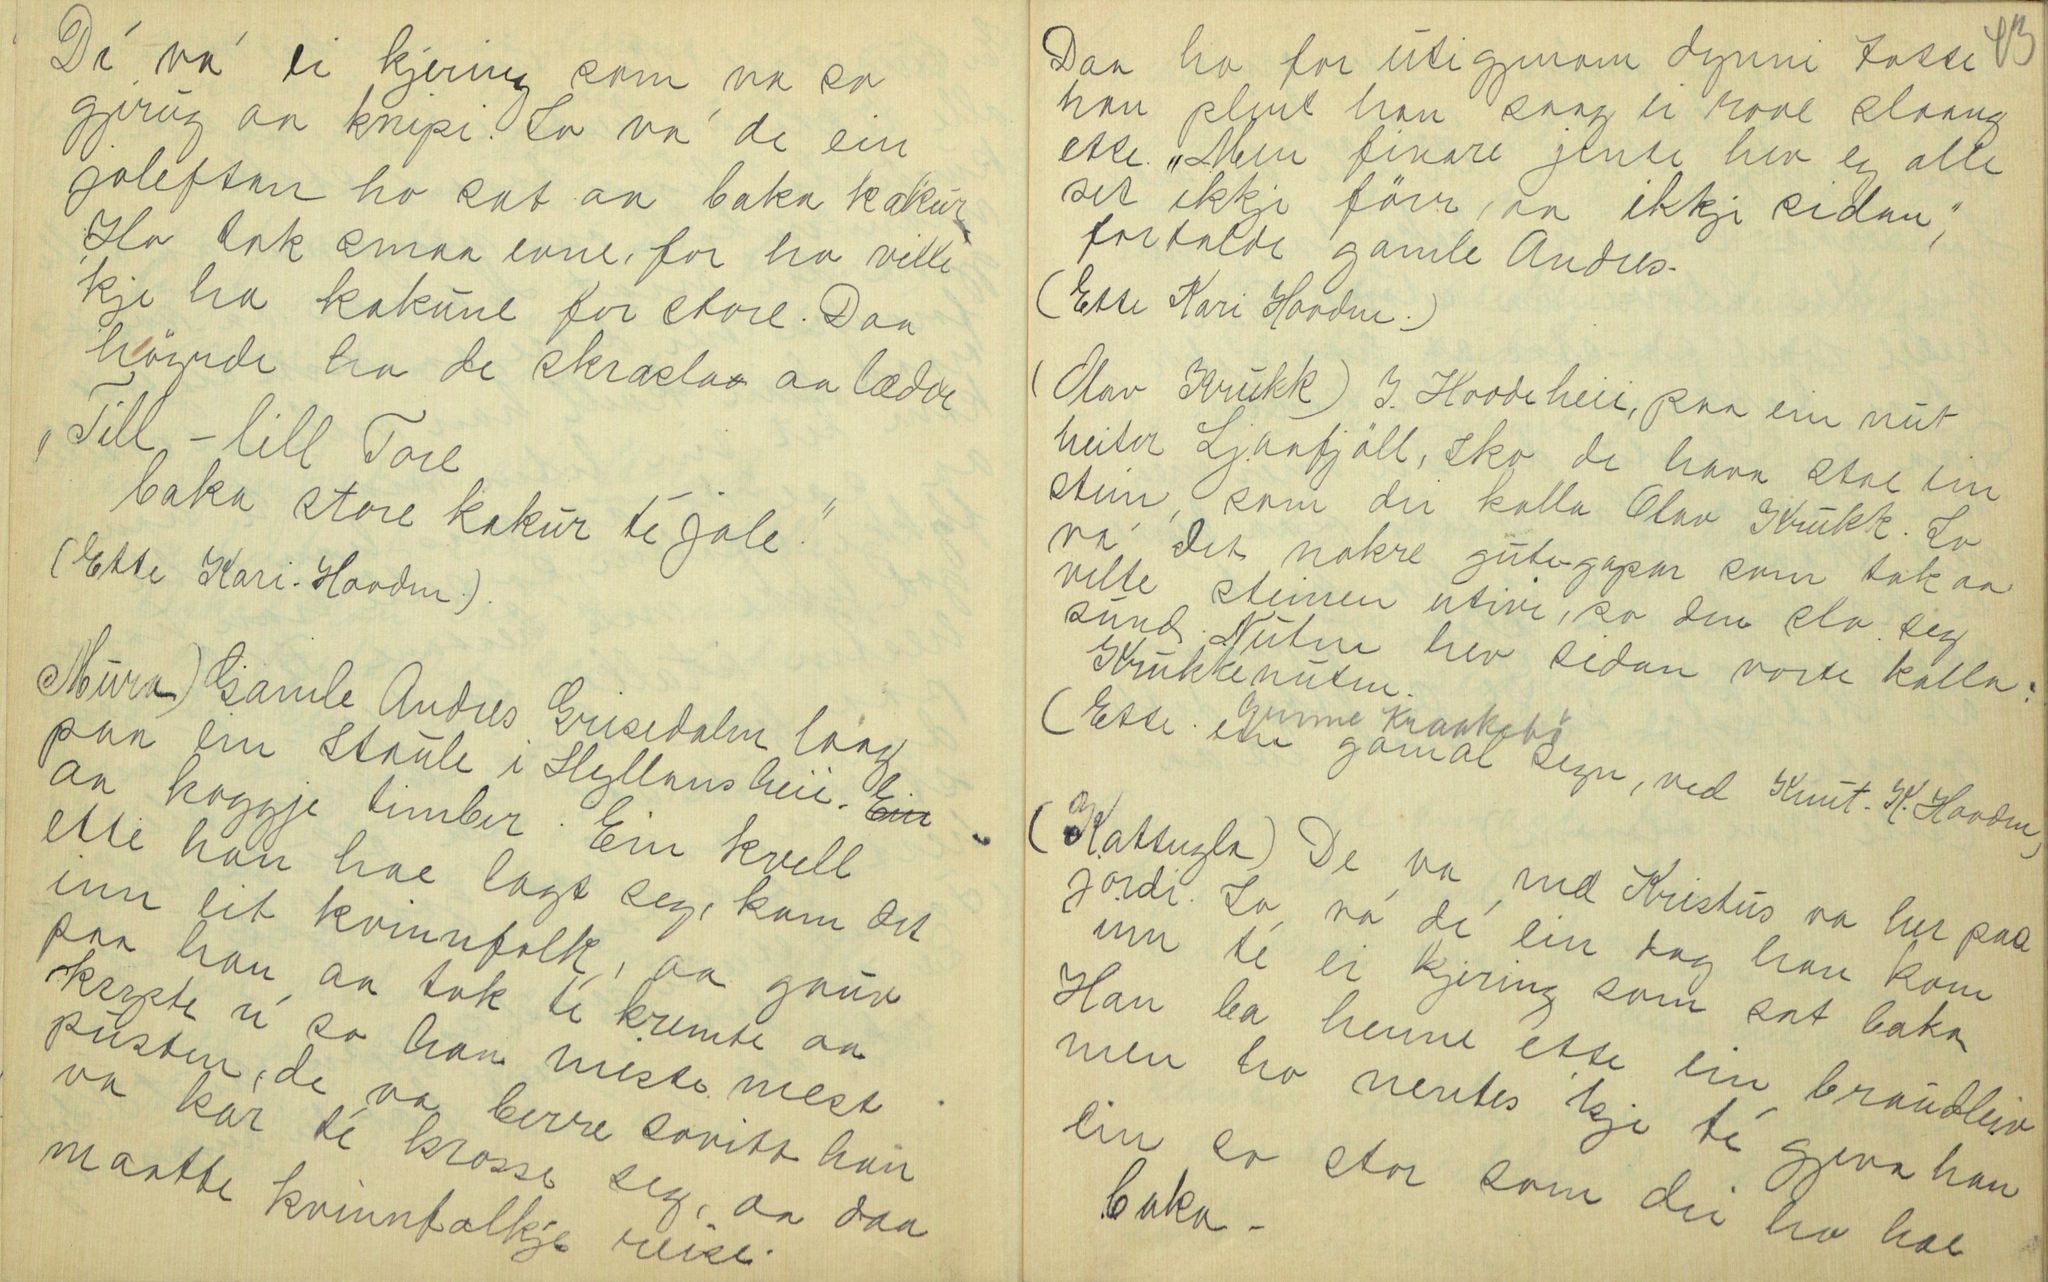 Dí va' ei kjering som va so
gjerug aa knipi. So va' de ein
joleftan ho sat aa baka kakur
Ho tok smaa evne, for ho ville
kje ha kakune for store. Daa
höyrde ho de skrasla aa lædde
"Till - lill Tore
baka store kakur té jole."
(Ette Kari Hovden.)
Mura) Gamle Andres Grisedalen laag
paa ein staule i Hyllansheii. Ein
aa hoggje timber. Ein kvell
ette han hae lagt seg, kom det
inn eit kvinnfolk, aa gauv
paa han aa tok té kremte aa
kryste ú so han miste mest
pusten, de va berre sovitt han
va kar té krosse seg, aa daa
maatte kvinnfolkje reise.
43
Daa ho for utigjenom dynni totte
han plent han saag ei rove slaang
ette. "Men finare jente hev eg alle
set ikkje förr, aa ikkje sidan",
fortalde gamle Andres.
(Ette Kari Hovden.)
(Olav Krukk) I Hovdeheii, paa ein nut
heiter Ljaafjöll, sko de hava stae ein
stein, som dei kalla Olav Krukk. So
va' det nokre gutegapar som tok aa
velte steinen utive, so den slo seg
sund. Nuten hev sidan vorte kalla:
Krukkenuten.
Gunne Kraakebö
(Ette ein gamal segn, ved Knut. K. Hovden,
(Kattugla) De va med Kristus va her paa
jordi. So va' dí ein dag han kom
inn té ei kjering som sat baka
Han ba henne ette ein braudleiv
men ho nentes kje té gjeva han
ein so stor som dei ho hae
baka -